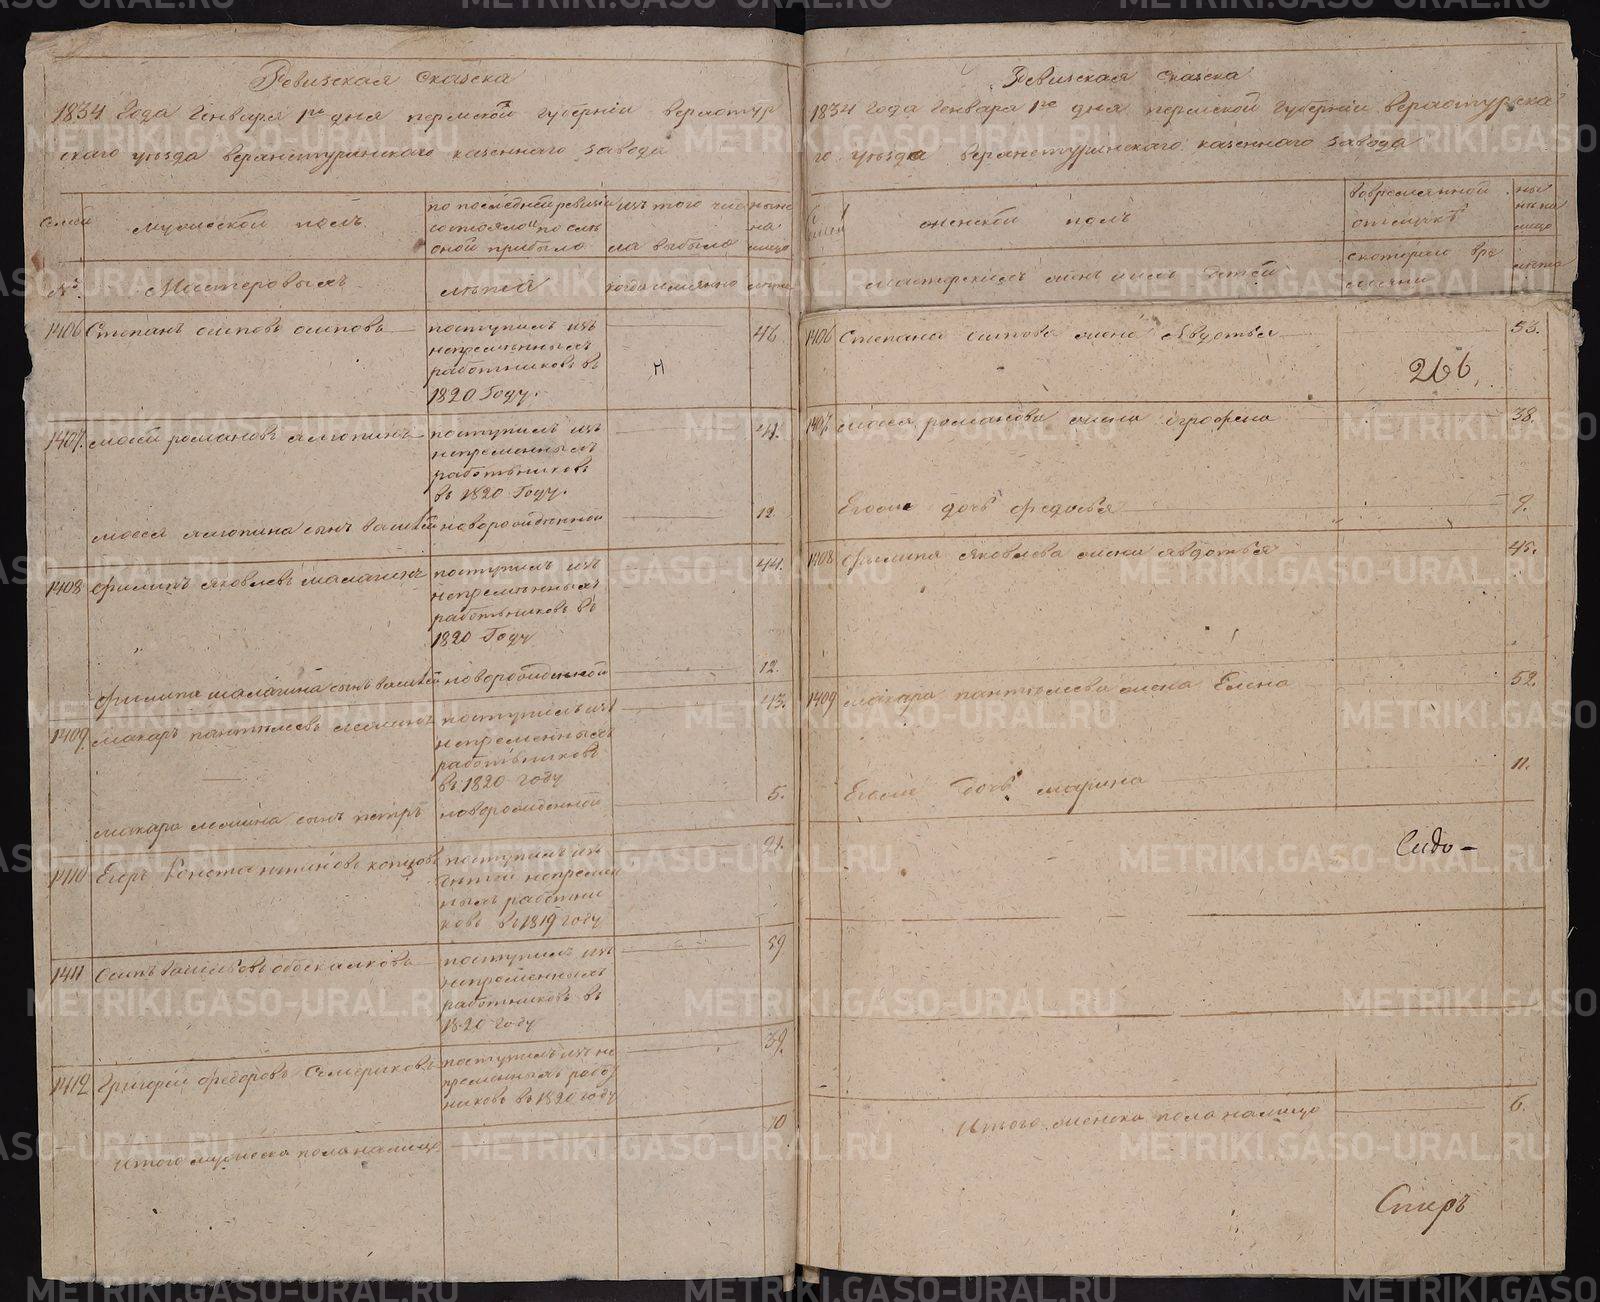 Ревизская сказка
1834 года Генваря 1го дня пермской губерніи верхотур
скаго уѣзда верхнетуринскаго казеннаго завода
семьи
мужеской полъ
по последней ревизіи
состояло и по слѣ
оной прибыло
изъ того чис
ла выбыло
ныне
на
лицо
№
Мастеровыхъ
лѣта
когда имянно
лѣта
1406 Степанъ осиповъ осиповъ
поступилъ изъ
непременныхъ
работниковъ въ
1820 Году.
46.
1407. моисей романовъ
поступилъ изъ
непременныхъ
работниковъ
въ 1820 Году.
41.
сынъ василей новорожденной
12.
1408 Филипъ яковлевъ малагинъ
поступилъ изъ
непременныхъ
работниковъ въ
1820 Году
44.
Филипа малагина сынъ василей новорожденной
12.
1409. макаръ
поступилъ изъ
непременныхъ
работниковъ
въ 1820 году
43.
макара сынъ петръ новорожденной
5.
1410 Егоръ Константиновъ
поступилъ изъ
детей непремен
ныхъ работни
ковъ въ 1819 году
21.
1411 Осипъ
поступилъ изъ
непременныхъ
работниковъ въ
1820 году
59
1412 Григорей федоровъ Семериковъ
поступилъ изъ не
пременныхъ работ
никовъ въ 1820 году
39.
Итого мужеска пола налицо
10
Ревизская сказка
1834 года Генваря 1го дня пермской губерніи верхотурска
го уѣзда верхнетуринскаго казеннаго завода
женской полъ
вовременной
отлучкѣ
ны
не на
лицо
мастерскихъ женъ ихъ детей
скотораго вре
мяни
лѣта
1406 Степана осипова жена Авдотья
53.
266.
1407 моисея романова жена
38.
Егоже дочь федосья
9.
1408 Филипа яковлева жена авдотья
45.
1409 макара жена Елена
52
Егоже дочь марина
11.
Сидо-
Итого женска пола налицо
6.
METRIKI.GASO-URAL.RU